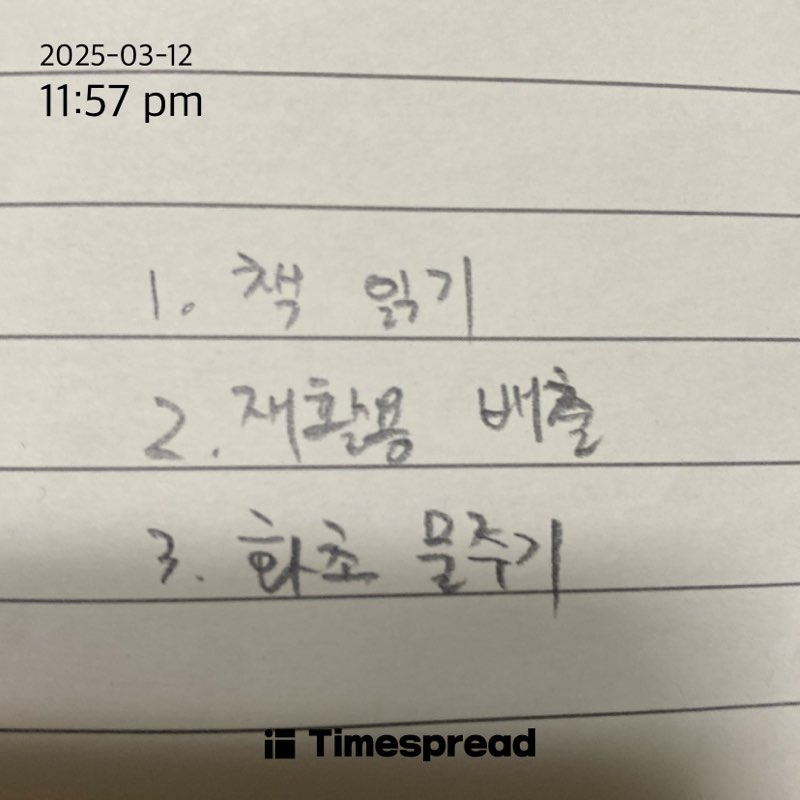 2025-03-12
11:57 pm
1. 책 읽기
2. 재활용 배출
3. 화초 물주기
Timespread